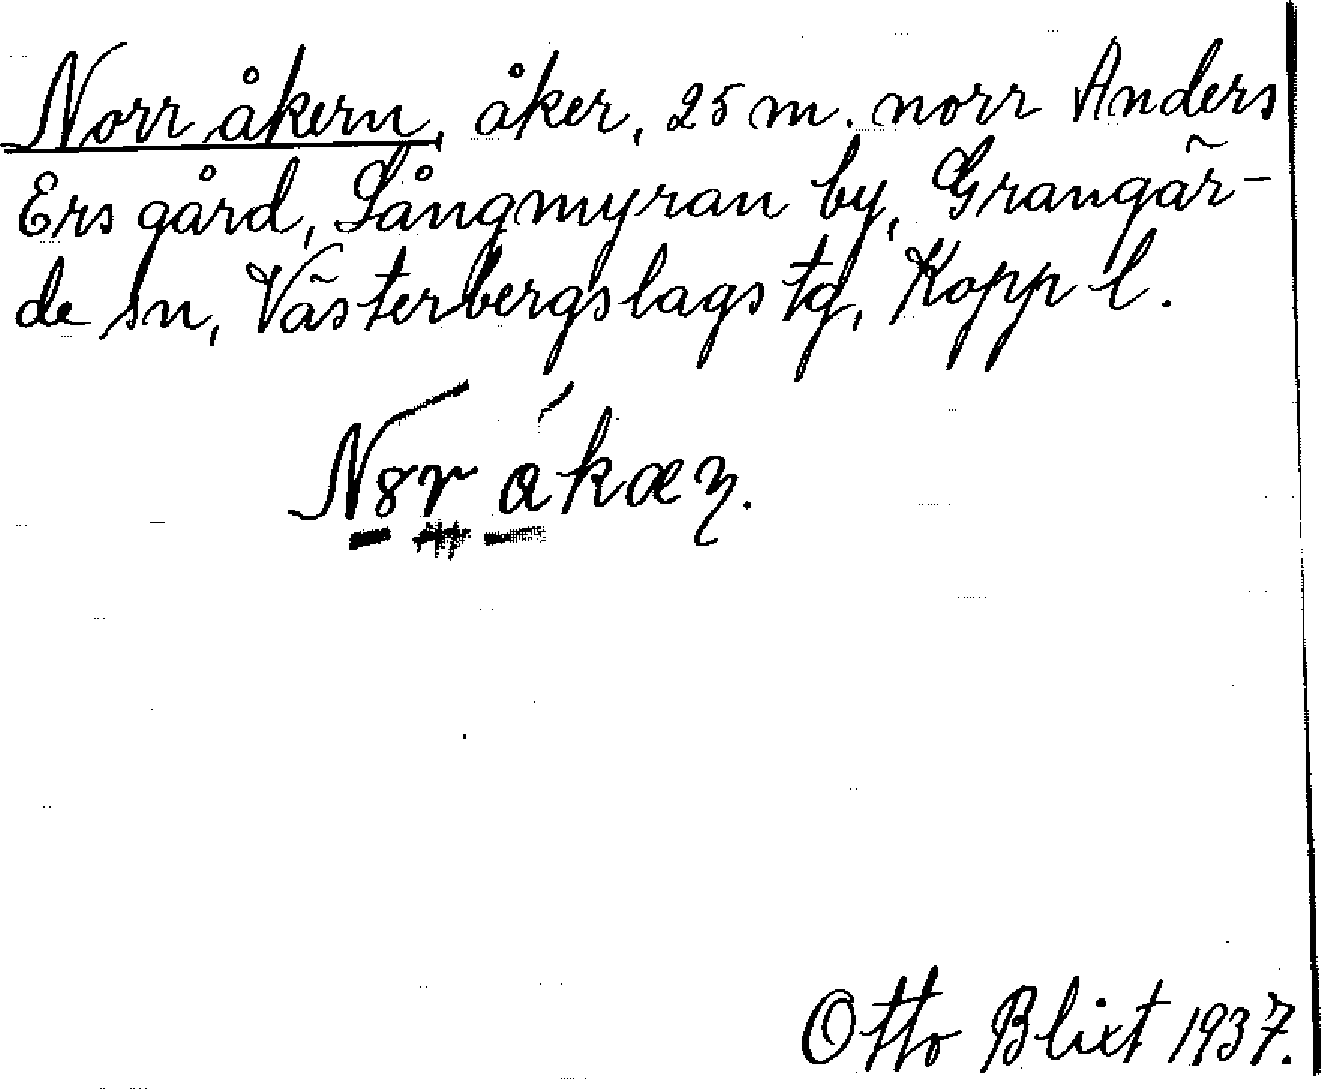 Norr åkern, åker, 25 m. norr Anders
Ers gård, Långmyran by, Grangär-
de sn, Västerbergslags tg, Kopp l.
Nor ákæn.
Otto Blixt 1937.